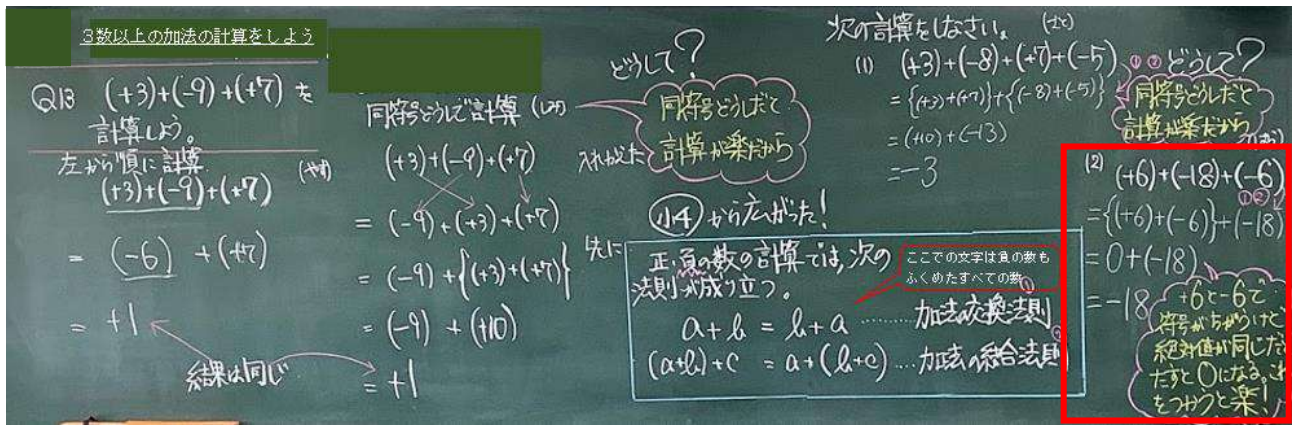 3数以上の加法の計算をしよう
Q13 (+3)+(-9)+(+7) を
計算しよう。
左から順に計算
(+3)+(-9)+(+7)
= (-6) +(+7)
= +1
結果は同じ
同符号どうしで計算
(+3)+(-9)+(+7)
= (-9)+(+3)+(+7)
= (-9)+{(+3)+(+7)}
= (-9)+(+10)
= +1
どうして?
同符号どうしだと
計算が楽だから
入れかた
先に
小4から広がった!
正・負の数の計算では,次の
法則が成り立つ。
ここでの文字は負の数も
ふくめたすべての数
a+b = b+a ……加法の交換法則①
(a+b)+c = a+(b+c) ……加法の結合法則②
次の計算をしなさい。
(1) (+3)+(-8)+(+7)+(-5)
={(+3)+(+7)}+{(-8)+(-5)}
=(+10)+(-13)
=-3
①② どうして?
同符号どうしだと
計算が楽だから
(2) (+6)+(-18)+(-6)
①②
={(+6)+(-6)}+(-18)
=0+(-18)
=-18
+6と-6で
符号がちがうけど
絶対値が同じだ
たすと0になる。これ
をつかうと楽!